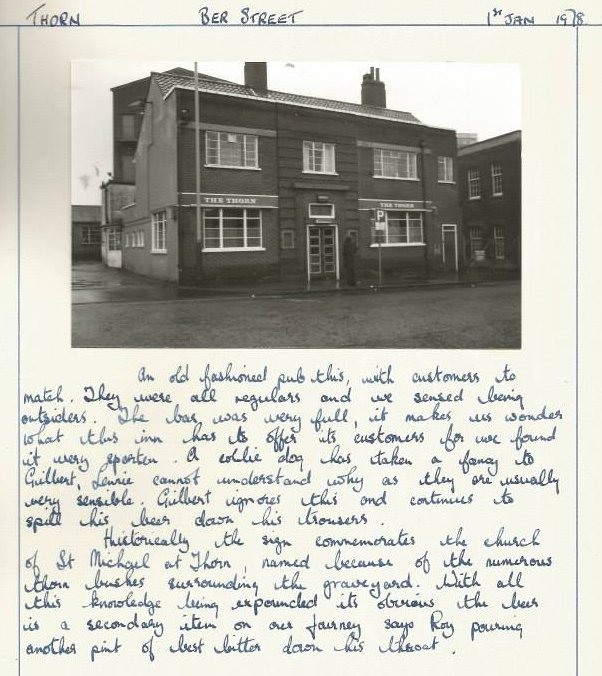 THORN BER STREET 1ST JAN 1978.
THE THORN THE THORN
P
An old fashioned pub this, with customers to
match. They were all regulars and we sensed being
outsiders. The bar was very full, it makes us wonder
what this inn has to offer its customers for we found
it very sparten. A collie dog has taken a fancy to
Gilbert, Lennie cannot understand why as they are usually
very sensible. Gilbert ignores this and continues to
spill his beer down his trousers.
Historically the sign commemorates the church
of St Michael at Thorn, named because of the numerous
thorn bushes surrounding the graveyard. With all
this knowledge being expounded its obvious the beer
is a secondary item on our journey says Roy pouring
another pint of best bitter down his throat.